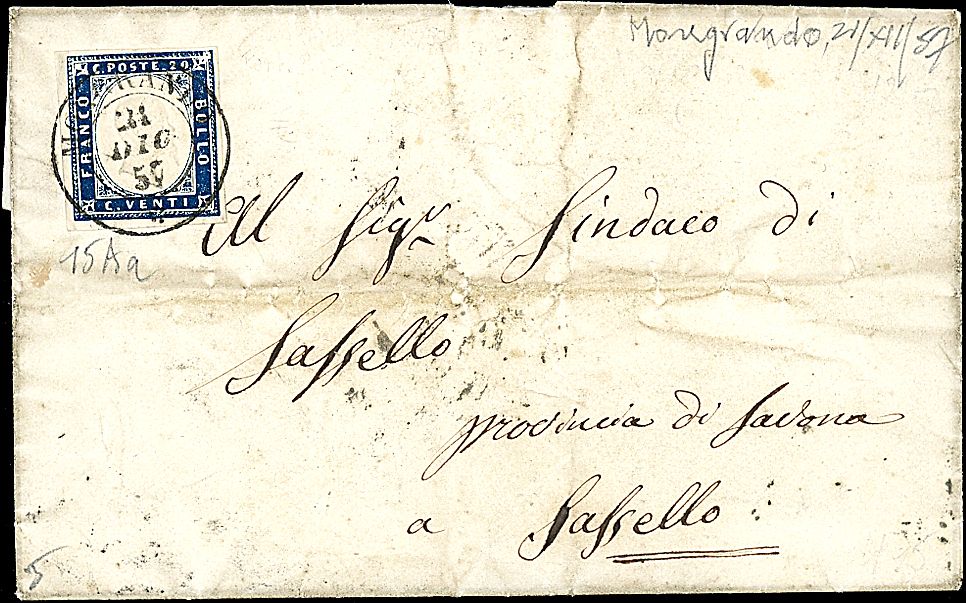 Moregrando, 21/XII/57
C. POSTE. 20
FRANCO
BOLLO
C. VENTI
21
DIC
57
15Aa
Al Sigr Sindaco di
Sassello
provincia di Savona
a Sassello
5